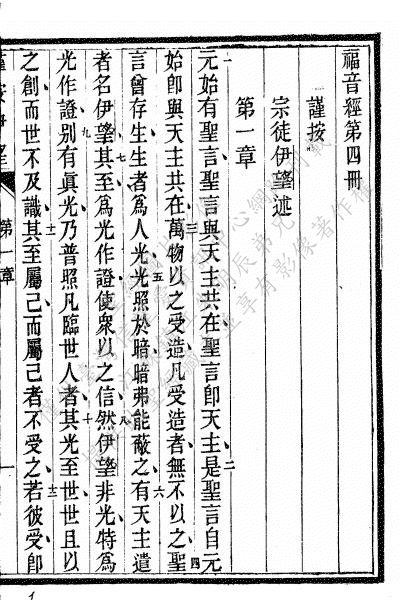 福音經第四冊
謹按
宗徒伊望述
第一章
一元始有聖言聖言與天主共在聖言即天主二是聖言自元
始卽與天主共在三萬物以之受造凡受造者無不以之四聖
言曾存生生者爲人光五光照於暗暗弗能蔽之六有天主遣
者名伊望七其至爲光作證使衆以之信八然伊望非光特爲
光作證九别有眞光乃普照凡臨世人者十其光至世世且以
之創而世不及識十一其至屬己而屬己者不受之十二若彼受卽
第一章
一
1